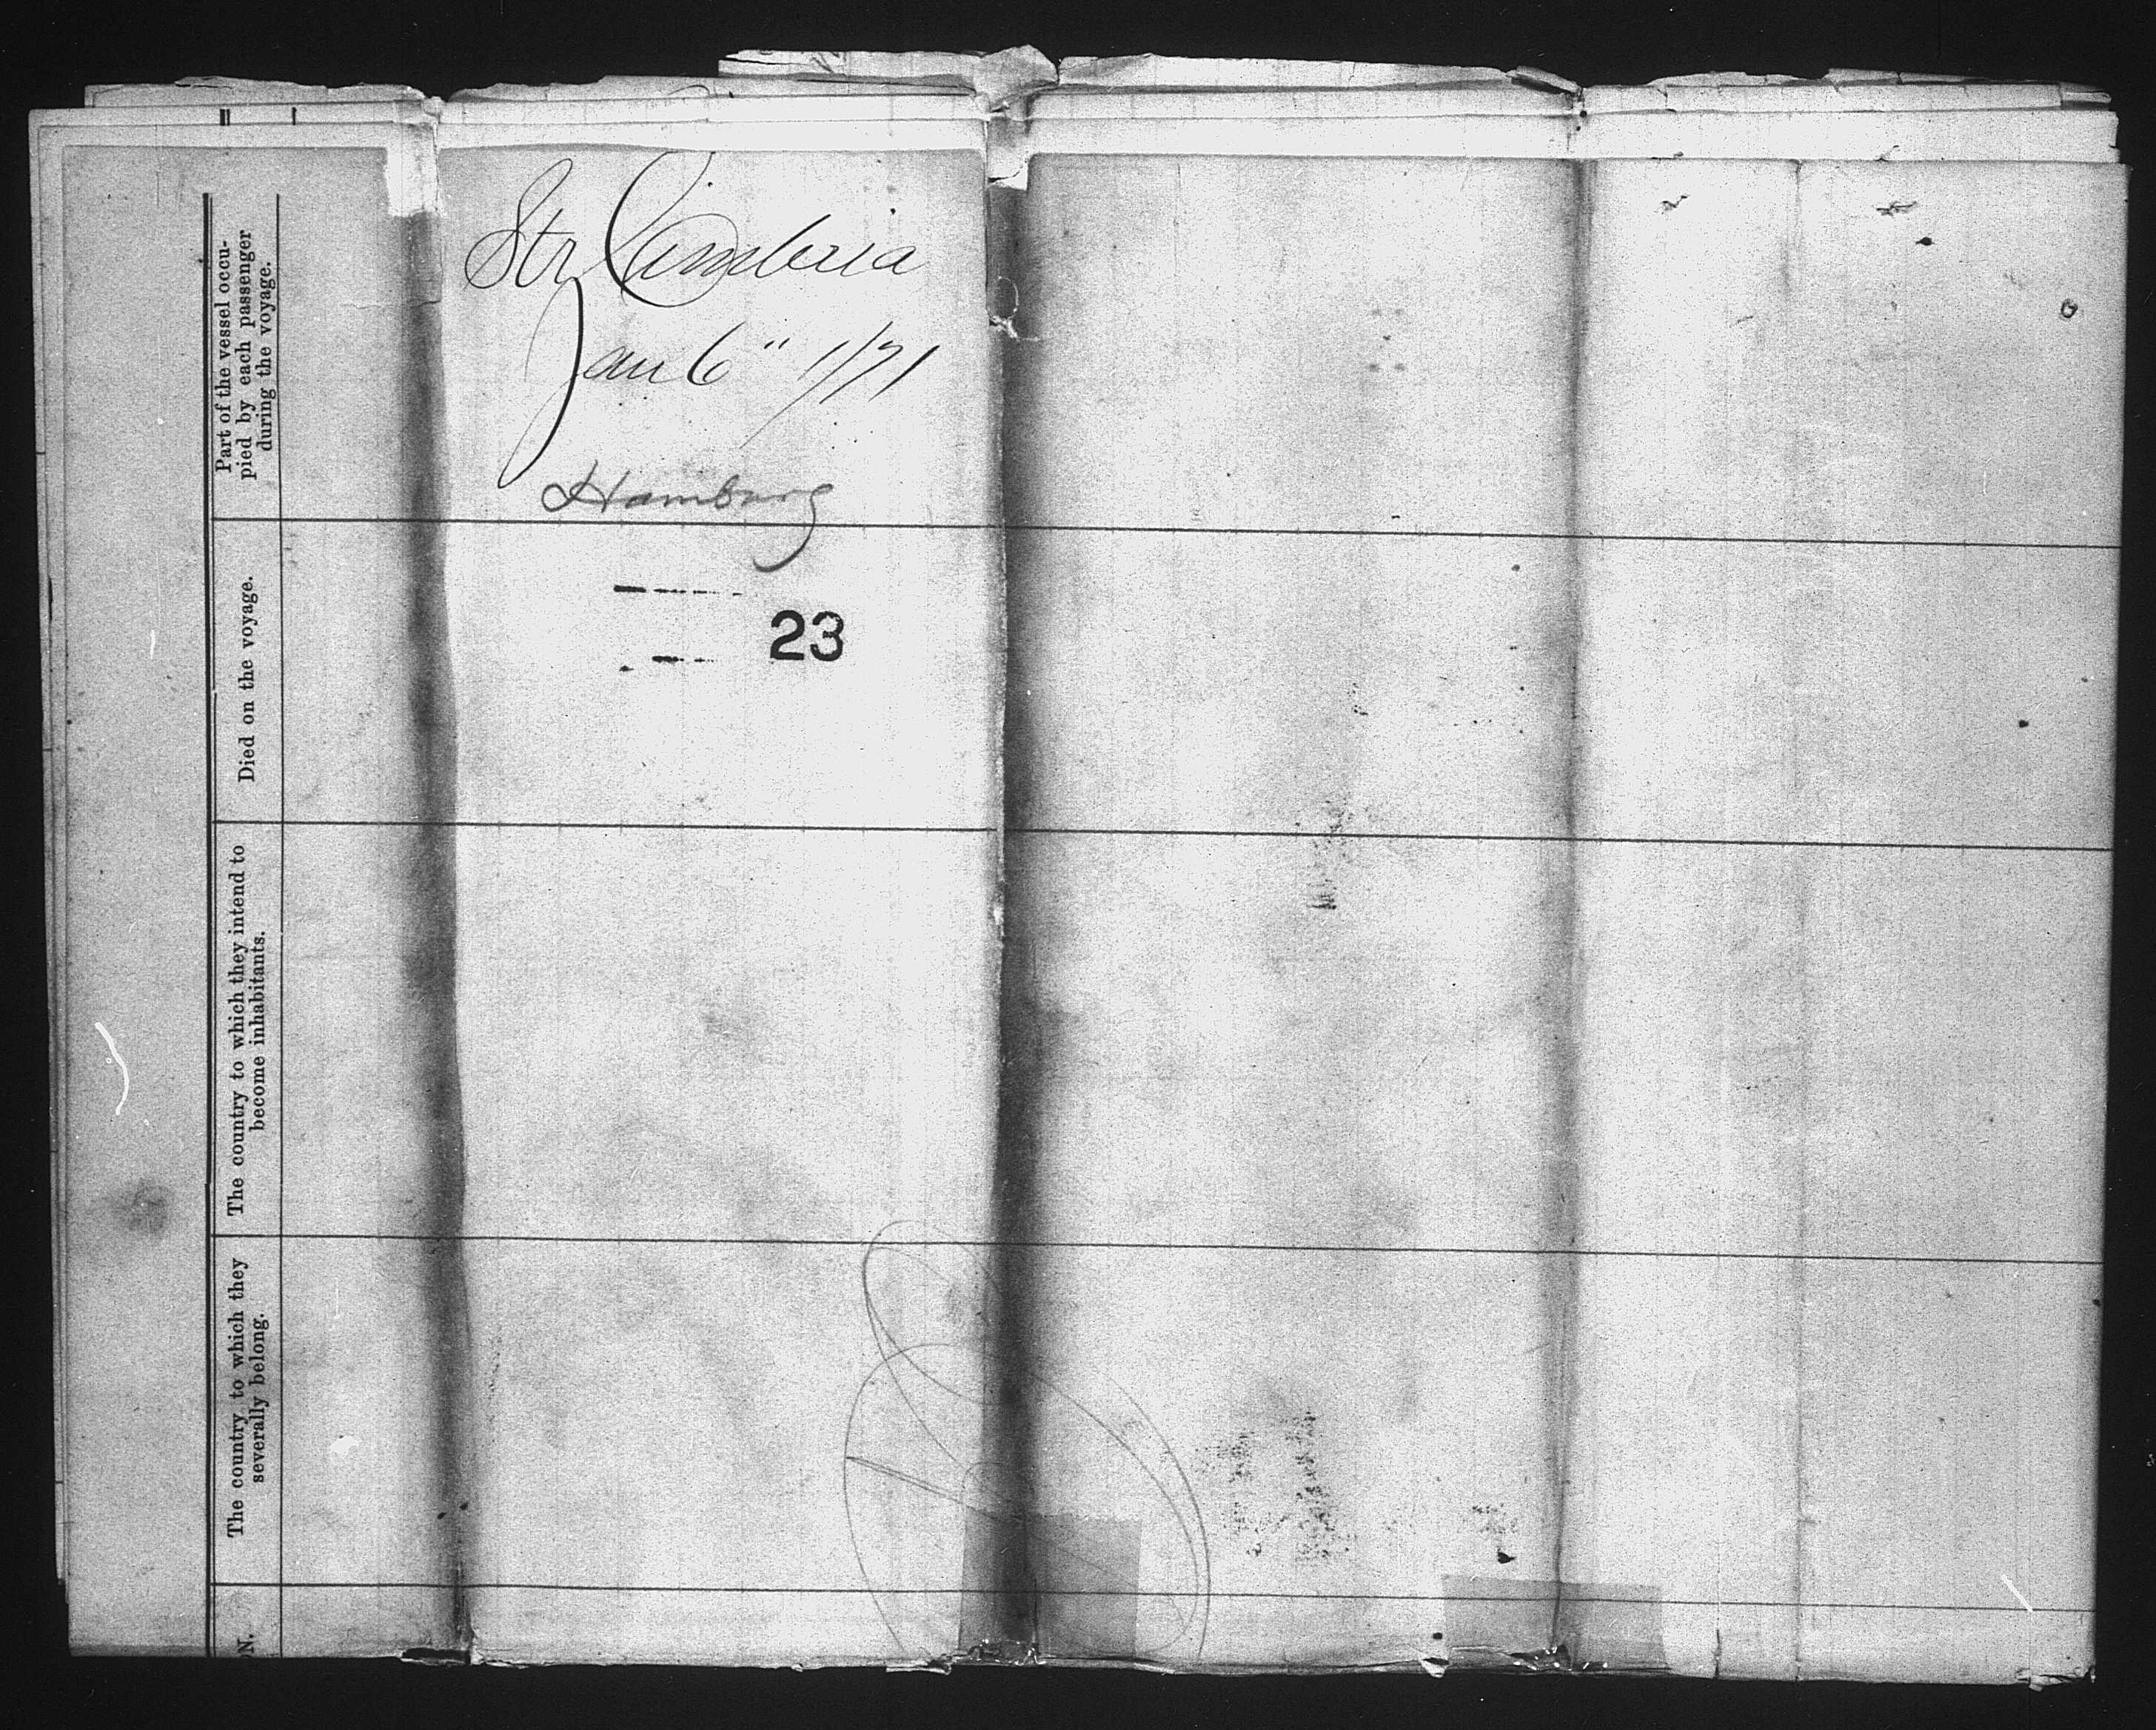 Str Cimbria
Jan 6" 1/71
Hamburg
23
Part of the vessel occu-
pied by each passenger
during the voyage.
Died on the voyage.
The country to which they intend to
become inhabitants.
The country to which they
severally belong.
N.